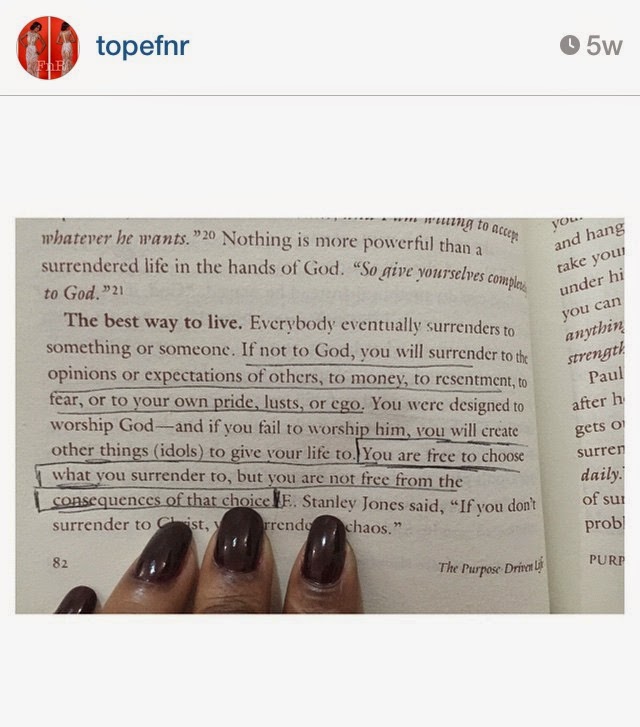 FnR
topefnr
5w
am willing to accept
whatever he wants."20 Nothing is more powerful than a
surrendered life in the hands of God. "So give yourselves completely
to God."21
The best way to live. Everybody eventually surrenders to
something or someone. If not to God, you will surrender to the
opinions or expectations of others, to money, to resentment, to
fear, or to your own pride, lusts, or ego. You were designed to
worship God—and if you fail to worship him, you will create
other things (idols) to give your life to. You are free to choose
what you surrender to, but you are not free from the
consequences of that choice. E. Stanley Jones said, "If you don't
surrender to Christ, chaos."
82
The Purpose Driven Life
and hang
take your
under hi
you can
anythin
strength
Paul
after h
gets
surren
daily."
of su
prob
PURP